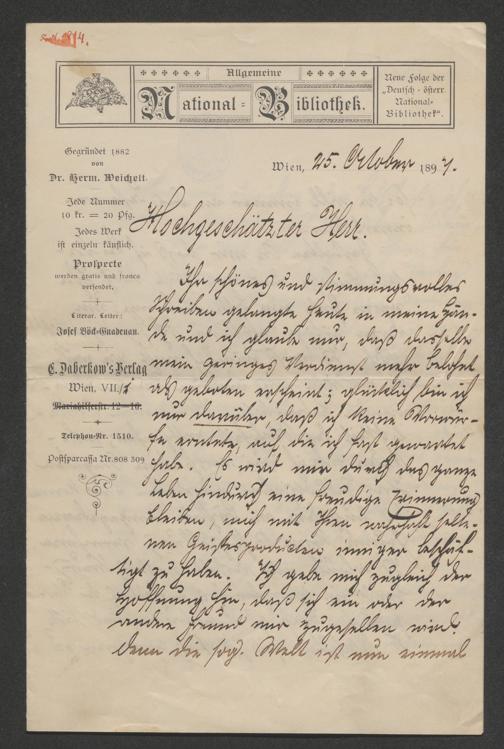 Allgemeine
National-Bibliothek.
Neue Folge der
„Deutsch-österr.
National-
Bibliothek“.
Gegründet 1882
von
Dr. Herm. Weichelt
Jede Nummer
10 kr. = 20 Pfg.
Jedes Werk
ist einzeln käuflich.
Prospecte
werden gratis und franco
versendet.
Literar. Leiter:
Josef Böck-Gnadenau.
C. Daberkow's Verlag
Wien, VII/1
Mariahilferstr. 12–16.
Telephon-Nr. 1510.
Postsparcassa Nr. 808 309
Wien, 25. October 1897.
Hochgeschätzter Herr.
Ihr schönes und stimmungsvolles
Schreiben gelangte heute in meine Hän-
de und ich glaube nur, daß dasselbe
mein geringes Verdienst mehr belohnt
als geboten erscheint; glücklich bin ich
nur darüber daß ich keine Vorwür-
fe erntete, auf die ich fast gewartet
habe. Es wird mir durch das ganze
Leben hindurch eine freudige Erinnerung
bleiben, mich mit Ihren wahrhaft selte-
nen Geistesproducten inniger beschäf-
tigt zu haben. Ich gebe mich zugleich der
Hoffnung hin, daß sich ein oder der
andere Freund mir zugesellen wird.
denn die sog. Welt ist nun einmal